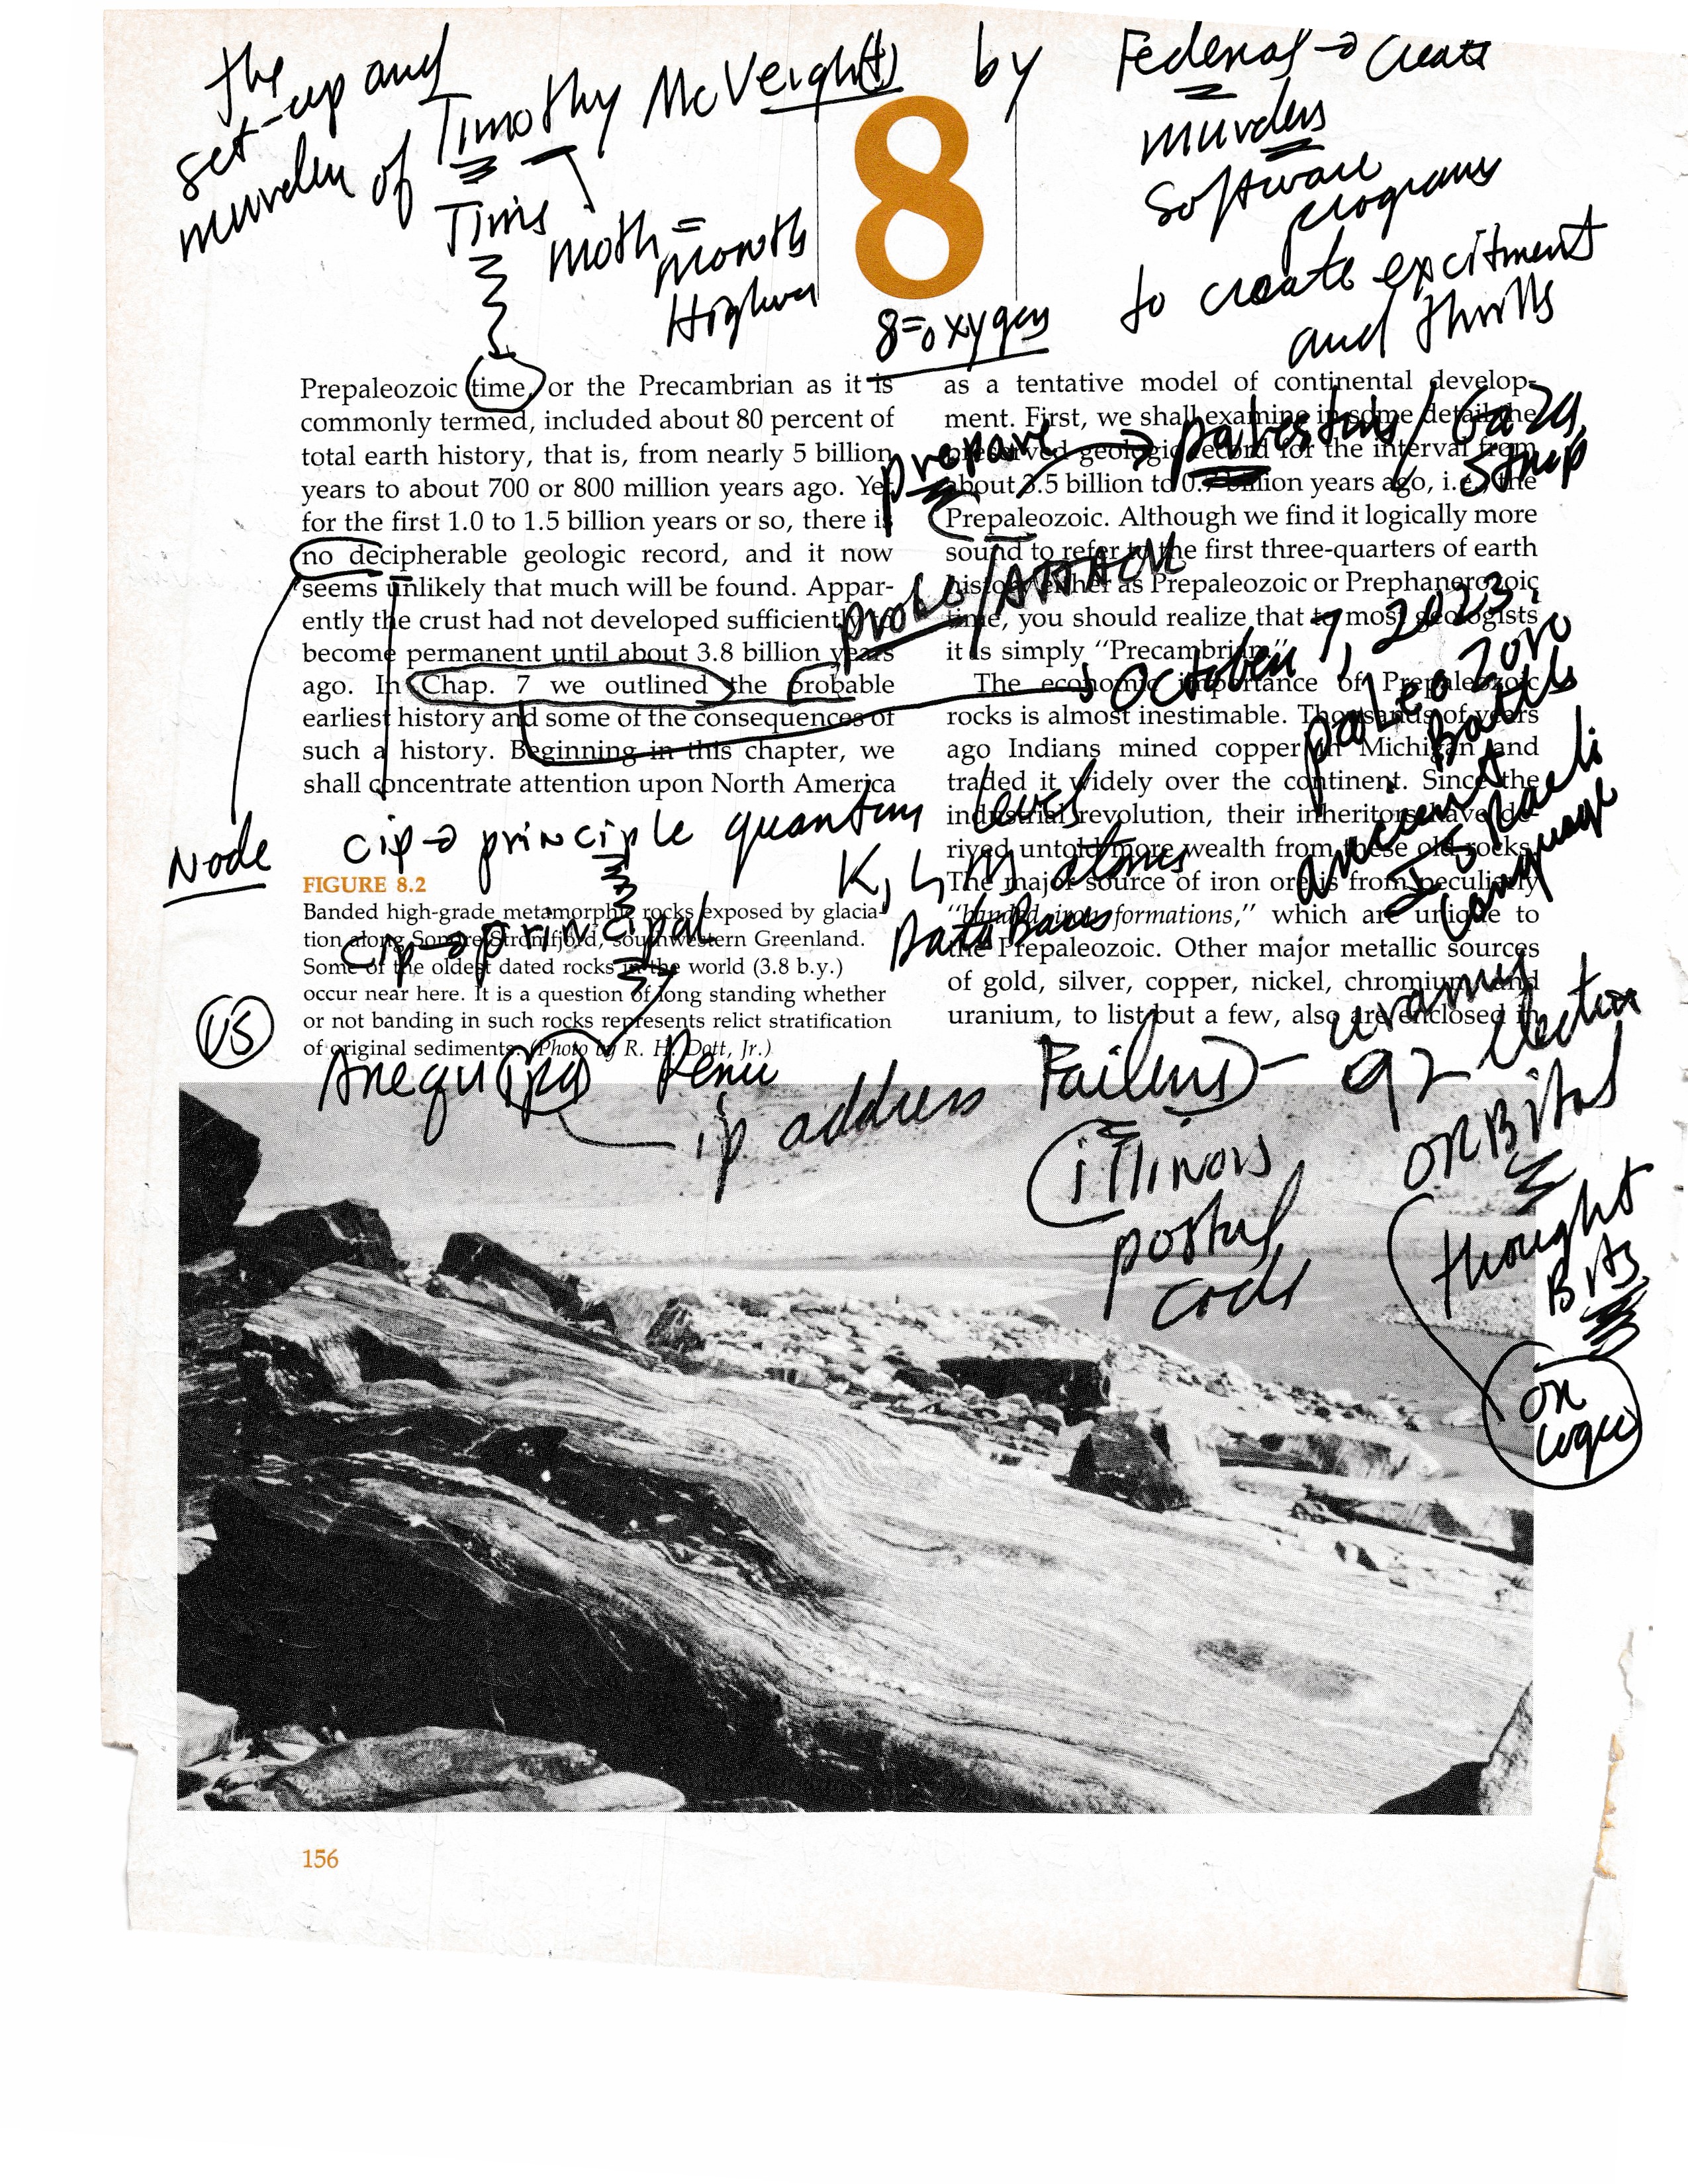 the
set-up and
murder of Timothy McVeigh(t) by Federal → Create
murders
Software
programs
to create excitment
and thrills
Tims
moth =
month
8
8=oxygen
Prepaleozoic time, or the Precambrian as it is
commonly termed, included about 80 percent of
total earth history, that is, from nearly 5 billion
years to about 700 or 800 million years ago. Yet
for the first 1.0 to 1.5 billion years or so, there is
no decipherable geologic record, and it now
seems unlikely that much will be found. Appar-
ently the crust had not developed sufficiently to
become permanent until about 3.8 billion years
ago. In Chap. 7 we outlined the probable
earliest history and some of the consequences of
such a history. Beginning in this chapter, we
shall concentrate attention upon North America
Node
cip → principle quantum level
K, L, M atoms
Data Bases
FIGURE 8.2
Banded high-grade metamorphic rocks exposed by glacia-
tion along Søndre Strømfjord, southwestern Greenland.
Some of the oldest dated rocks in the world (3.8 b.y.)
occur near here. It is a question of long standing whether
or not banding in such rocks represents relict stratification
of original sediments. (Photo by R. H. Dott, Jr.)
cip → principal
US
Arequipa Peru
ip address
as a tentative model of continental develop-
ment. First, we shall examine in some detail the
preserved geologic record for the interval from
about 3.5 billion to 0.7 billion years ago, i.e., the
Prepaleozoic. Although we find it logically more
sound to refer to the first three-quarters of earth
history either as Prepaleozoic or Prephanerozoic
time, you should realize that to most geologists
it is simply "Precambrian."
The economic importance of Prepaleozoic
rocks is almost inestimable. Thousands of years
ago Indians mined copper in Michigan and
traded it widely over the continent. Since the
industrial revolution, their inheritors have de-
rived untold more wealth from these old rocks.
The major source of iron ore is from peculiarly
"banded iron formations," which are unique to
the Prepaleozoic. Other major metallic sources
of gold, silver, copper, nickel, chromium, and
uranium, to list but a few, also are enclosed in
prepare → palestine / Gaza
Strip
probe / ATTACK
October 7, 2023
Battle
ancient
Israeli
Language
uranium
92 electron
ORBital
thought
Bits
illinois
postal
code
156